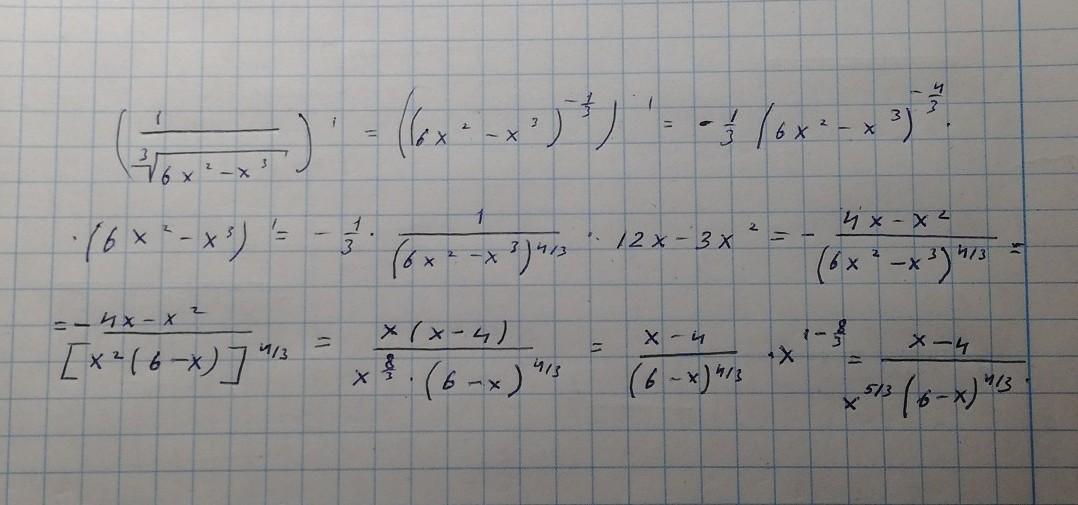 (1/∛(6x² - x³))' = ((6x² - x³)^(-1/3))' = -1/3 (6x² - x³)^(-4/3) ·
· (6x² - x³)' = -1/3 · 1/(6x² - x³)^(4/3) · 12x - 3x² = - (4x - x²)/(6x² - x³)^(4/3) =
= - (4x - x²)/[x²(6 - x)]^(4/3) = x(x - 4)/(x^(8/3) · (6 - x)^(4/3)) = (x - 4)/(6 - x)^(4/3) · x^(1 - 8/3) = (x - 4)/(x^(5/3) (6 - x)^(4/3)) .